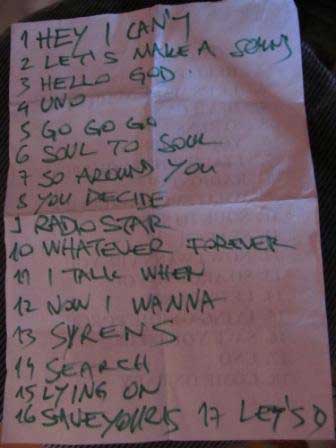 1 HEY I CAN'T
2 LET'S MAKE A SONG
3 HELLO GOD.
4 UNO
5 GO GO GO
6 SOUL TO SOUL
7 SO AROUND YOU
8 YOU DECIDE
9 RADIO STAR
10 WHATEVER FOREVER
11 I TALK WHEN
12 NOW I WANNA
13 SYRENS
14 SEARCH
15 LYING ON
16 SAVE YOURS 17 LET'S D